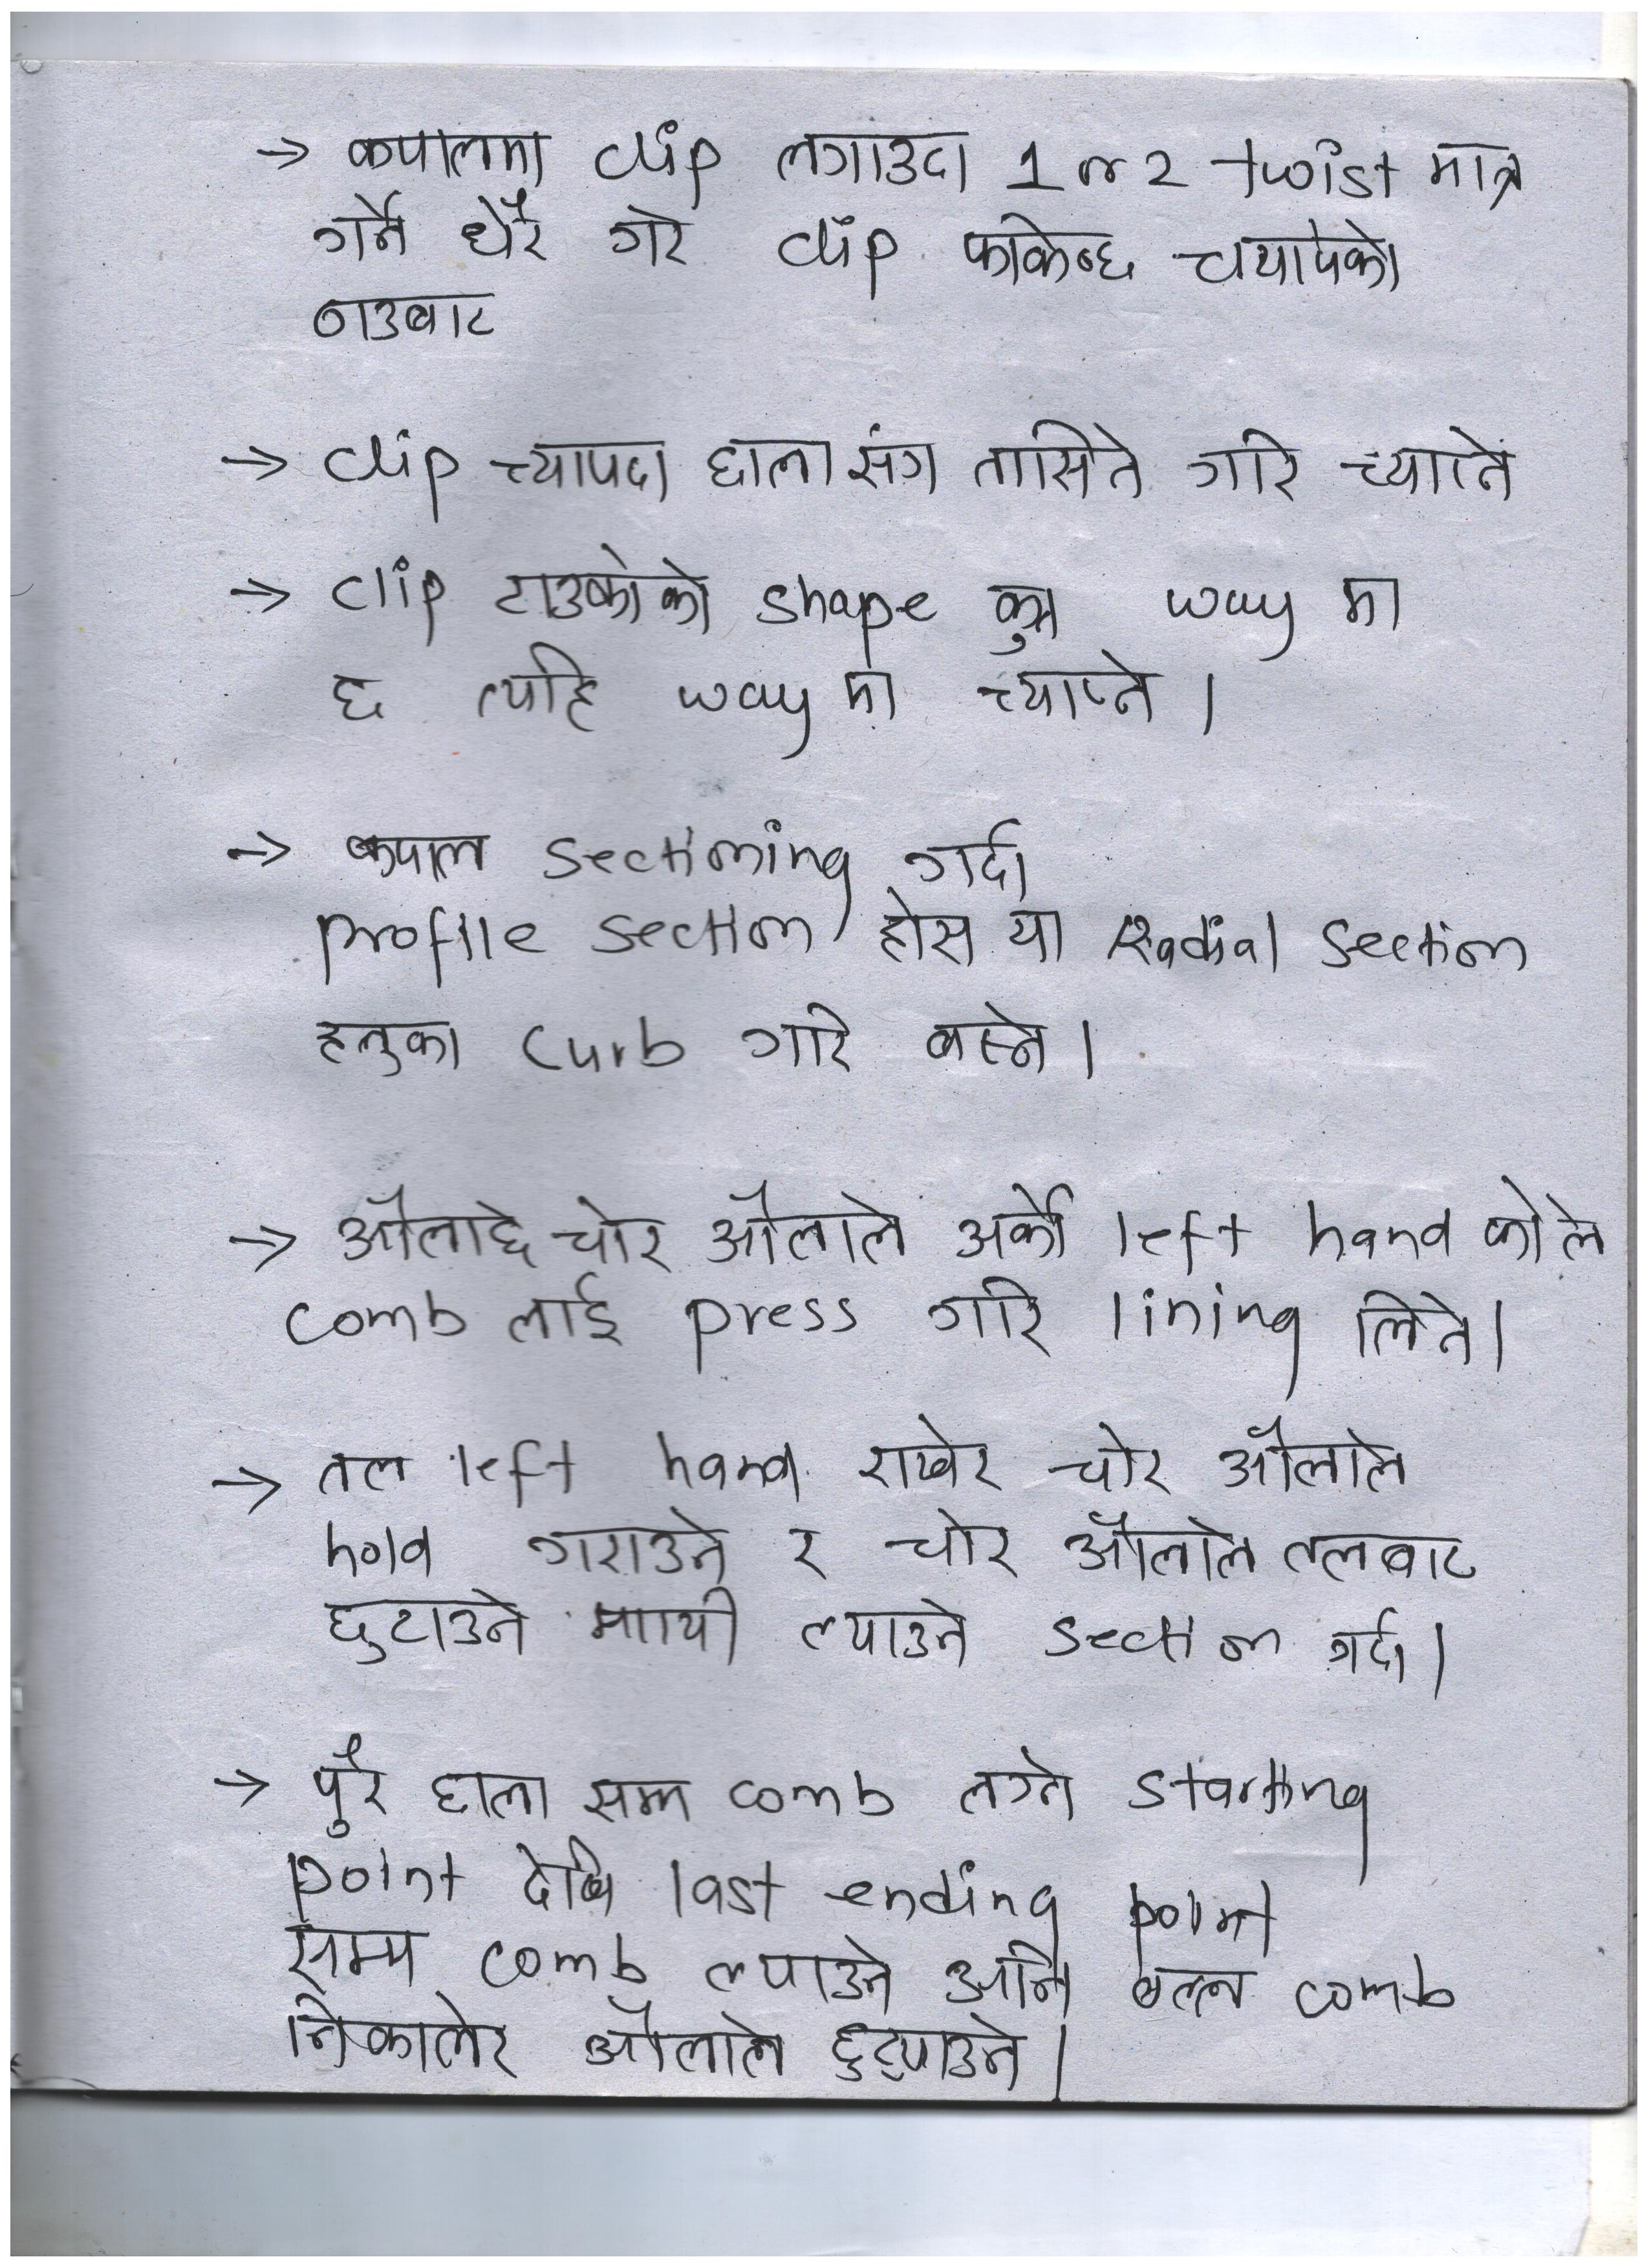 → कपालमा clip लगाउदा 1 or 2 twist मात्र
गर्ने धेरै गरे clip फर्किन्छ च्यापेको
ठाउबाट
→ clip च्यापदा छाला संग तासिने गरि च्याप्ने
→ clip टाउकोको shape कुन way मा
छ त्यहि way मा च्याप्ने ।
→ कपाल sectioning गर्दा
profile section होस या Radial section
हलुका curb गरि बस्ने ।
→ औलाछे चोर औलाले अर्को left hand कोले
comb लाई press गरि lining लिने ।
→ तल left hand राखेर चोर औलाले
hold गराउने र चोर औलाले तलबाट
छुटाउने माथी ल्याउने section गर्दा ।
→ पुरै छाला सम्म comb लग्ने starting
point देखि last ending point
सम्म comb ल्याउने अनि बल्ल comb
निकालेर औलाले छुट्याउने ।